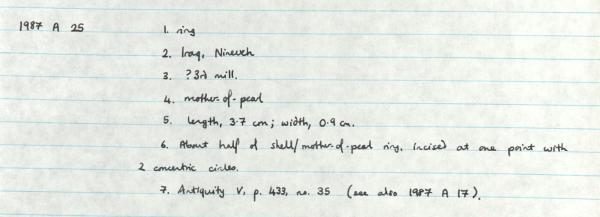 1987 A 25 1. ring
2. Iraq, Nineveh
3. ?3rd mill.
4. mother-of-pearl
5. length, 3.7 cm; width, 0.9 cm.
6. About half of shell/mother-of-pearl ring, incised at one point with
2 concentric circles.
7. Antiquity V, p. 433, no. 35 (see also 1987 A 17).